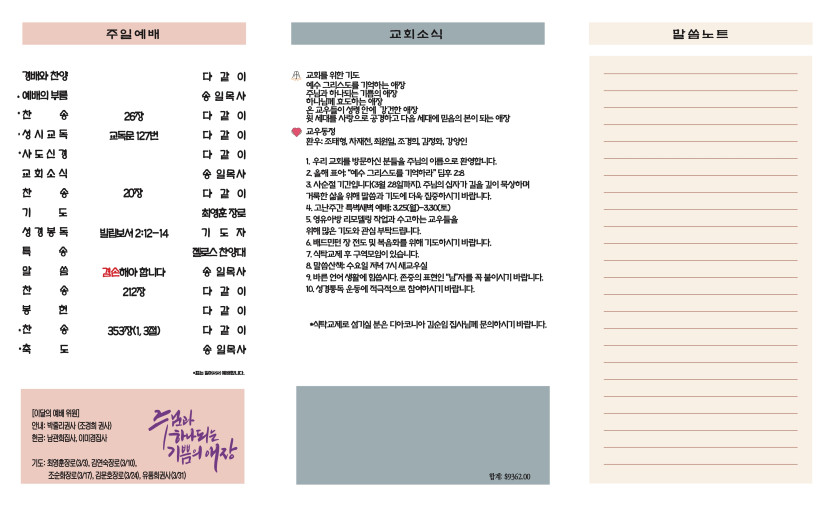 주일예배
경배와 찬양 다 같 이
• 예배의 부름 송 일목사
• 찬 송 26장 다 같 이
• 성 시 교 독 교독문 127번 다 같 이
• 사 도 신 경 다 같 이
교 회 소 식 송 일목사
찬 송 20장 다 같 이
기 도 최영훈 장로
성 경 봉 독 빌립보서 2:12-14 기 도 자
특 송 겔로스 찬양대
말 씀 겸손해야 합니다 송 일목사
찬 송 212장 다 같 이
봉 헌 다 같 이
• 찬 송 353장(1, 3절) 다 같 이
• 축 도 송 일목사
[이달의 예배 위원]
안내: 박줄리권사 (조경희 권사)
헌금: 남관희집사, 이미경집사
기도: 최영훈장로(3/3), 김연숙장로(3/10),
조순화장로(3/17), 김문호장로(3/24), 유풍희권사(3/31)
주님과
하나되는
기쁨의 애장
교회소식
교회를 위한 기도
예수 그리스도를 기억하는 애장
주님과 하나되는 기쁨의 애장
하나님께 효도하는 애장
온 교우들이 성령 안에 강건한 애장
윗 세대를 사랑으로 공경하고 다음 세대에 믿음의 본이 되는 애장
교우동정
환우: 조태형, 차재천, 최원일, 조경희, 김정화, 강양인
1. 우리 교회를 방문하신 분들을 주님의 이름으로 환영합니다.
2. 올해 표어: "예수 그리스도를 기억하라" 딤후 2:8
3. 사순절 기간입니다(3월 28일까지). 주님의 십자가 길을 깊이 묵상하며
거룩한 삶을 위해 말씀과 기도에 더욱 집중하시기 바랍니다.
4. 고난주간 특벽새벽 예배: 3.25(월)-3.30(토)
5. 영유아방 리모델링 작업과 수고하는 교우들을
위해 많은 기도와 관심 부탁드립니다.
6. 배드민턴 장 전도 및 복음화를 위해 기도하시기 바랍니다.
7. 식탁교제 후 구역모임이 있습니다.
8. 말씀산책: 수요일 저녁 7시 새교우실
9. 바른 언어 생활에 힘씁시다. 존중의 표현인 "님"자를 꼭 붙이시기 바랍니다.
10. 성경통독 운동에 적극적으로 참여하시기 바랍니다.
*식탁교제로 섬기실 분은 디아코니아 김순임 집사님께 문의하시기 바랍니다.
합계: $9362.00
말씀노트